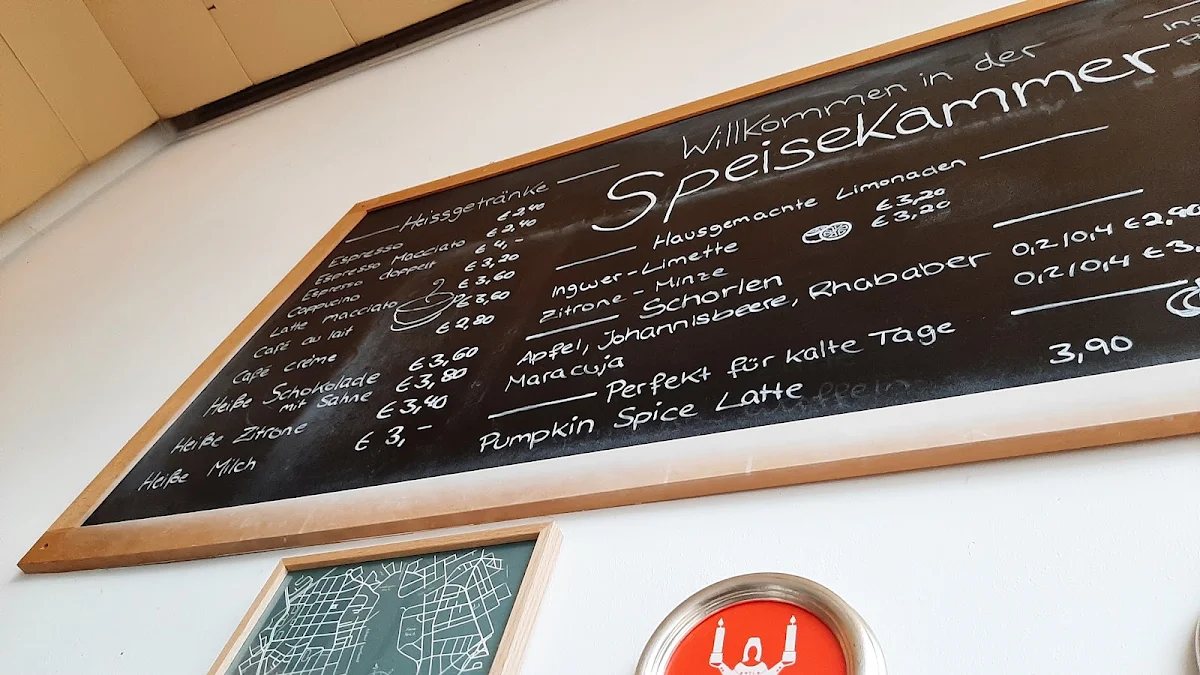 Willkommen in der
Speisekammer
Heissgetränke
Espresso € 2,40
Espresso Macciato € 2,40
Espresso doppelt € 4,-
Cappucino € 3,20
Latte macciato € 3,60
Café au lait € 3,60
Café crème € 2,80
Heiße Schokolade € 3,60
mit Sahne € 3,80
Heiße Zitrone € 3,40
Heiße Milch € 3,-
Hausgemachte Limonaden
Ingwer-Limette € 3,20
Zitrone-Minze € 3,20
Schorlen
Apfel, Johannisbeere, Rhababer 0,2/0,4 € 2,90
Maracuja 0,2/0,4 € 3
Perfekt für kalte Tage
Pumpkin Spice Latte 3,90